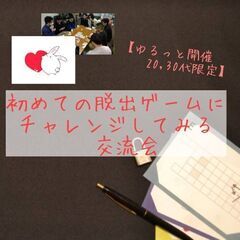 【ゆるっと開催
20,30代限定】
初めての脱出ゲームに
チャレンジしてみる
交流会